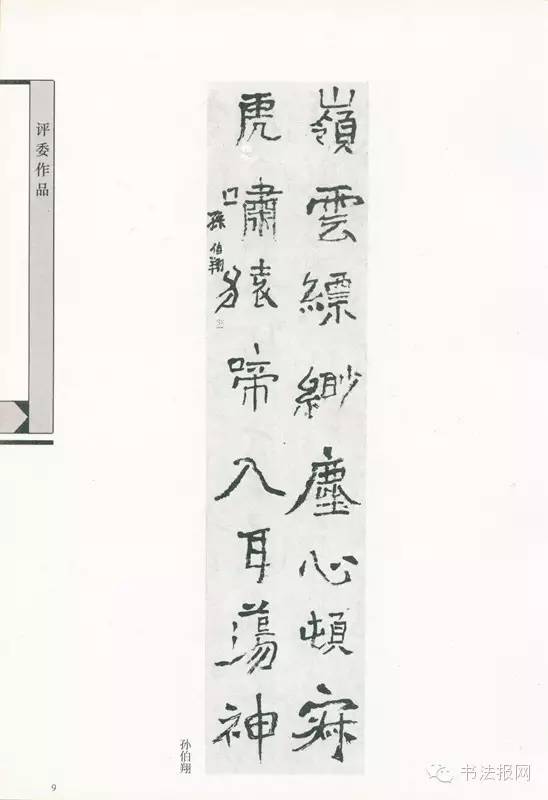 评委作品
嶺雲縹緲塵心頓寂
虎嘯猿啼入耳蕩神
孫伯翔
孙伯翔
9
书法报网